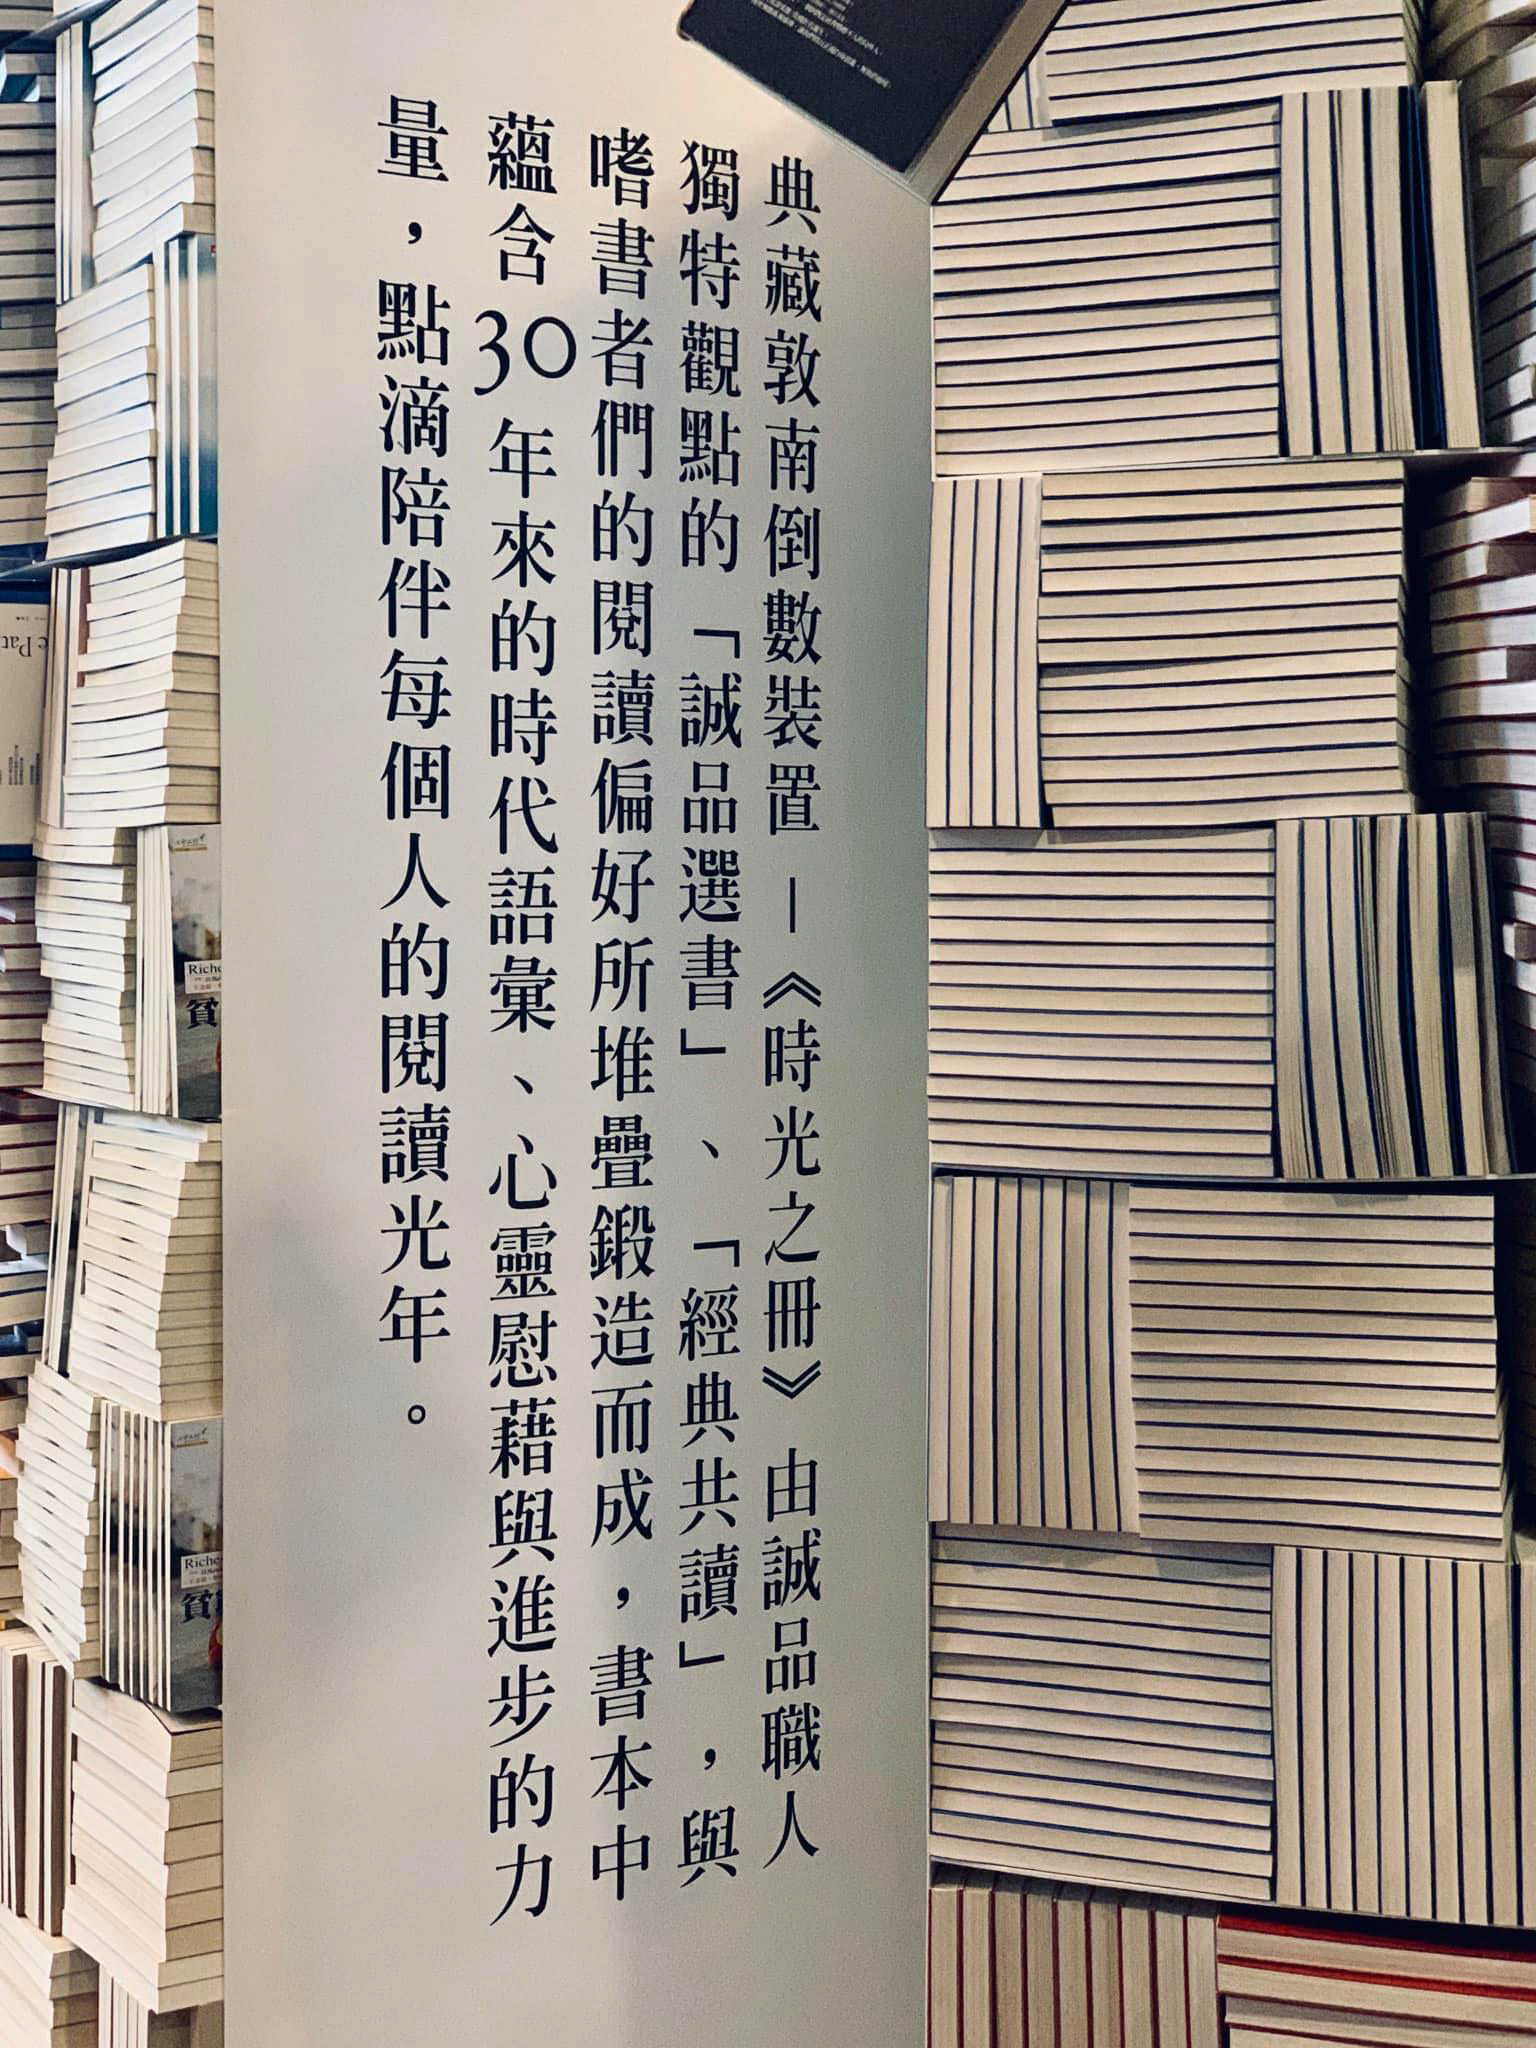 典藏敦南倒數裝置－《時光之冊》由誠品職人
獨特觀點的「誠品選書」、「經典共讀」，與
嗜書者們的閱讀偏好所堆疊鍛造而成，書本中
蘊含30年來的時代語彙、心靈慰藉與進步的力
量，點滴陪伴每個人的閱讀光年。
Riches
貧
Riches
貧
e Pat